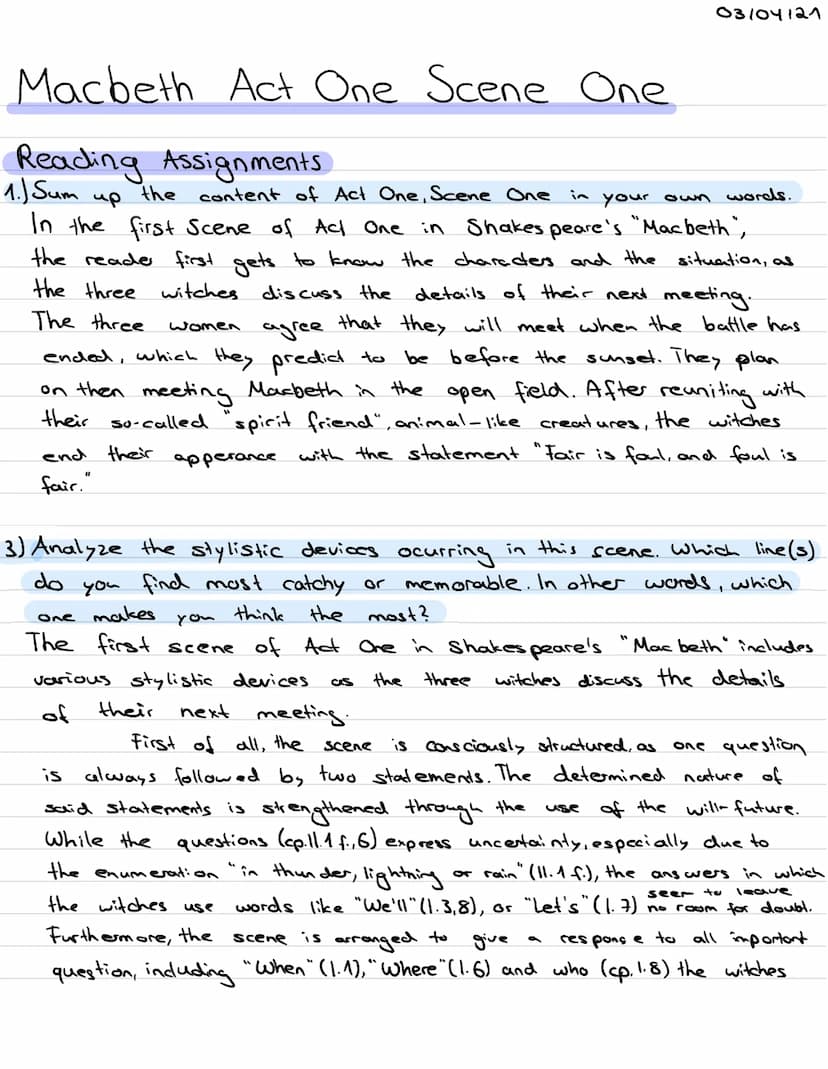 03/04/21
Macbeth Act One Scene One
Reading Assignments
1.) Sum up the content of Act One, Scene One in your own words.
In the first Scene of Act One in Shakespeare's "Macbeth",
the reader first gets to know the characters and the situation, as
the three witches discuss the details of their next meeting.
The three women agree that they will meet when the battle has
ended, which they predict to be before the sunset. They plan
on then meeting Macbeth in the open field. After reuniting with
their so-called "spirit friend", animal-like creatures, the witches
end their apperance with the statement "Fair is foul, and foul is
fair."
3) Analyze the stylistic devices ocurring in this scene. Which line(s)
do you find most catchy or memorable. In other words, which
one makes you think the most?
The first scene of Act One in Shakespeare's "Macbeth" includes
various stylistic devices as the three witches discuss the details
of their next meeting.
First of all, the scene is consciously structured, as one question
is always followed by two statements. The determined nature of
said statements is strengthened through the use of the will-future.
While the questions (cp. ll. 1 f., 6) express uncertainty, especially due to
the enumeration "in thunder, lightning or rain" (ll. 1 f.), the answers in which
the witches use words like "We'll" (l. 3, 8), or "Let's" (l. 7) seem to leave no room for doubt.
Furthermore, the scene is arranged to give a response to all important
question, including "When" (l. 1), "Where" (l. 6) and who (cp. l. 8) the witches